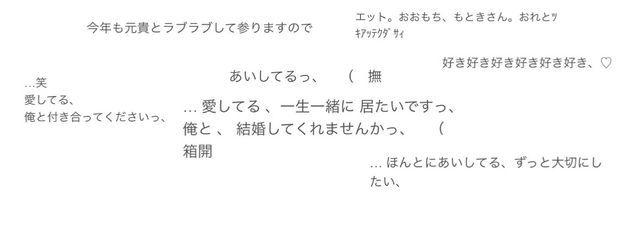 今年も元貴とラブラブして参りますので
エット。おおもち、もときさん。おれとﾂ
ｷｱｯﾃｸﾀﾞｻｨ
好き好き好き好き好き好き、♡
あいしてるっ、　（　撫
…笑
愛してる、
俺と付き合ってくださいっ、
… 愛してる 、一生一緒に 居たいですっ、
俺と 、 結婚してくれませんかっ、　（
箱開
… ほんとにあいしてる、ずっと大切にし
たい、